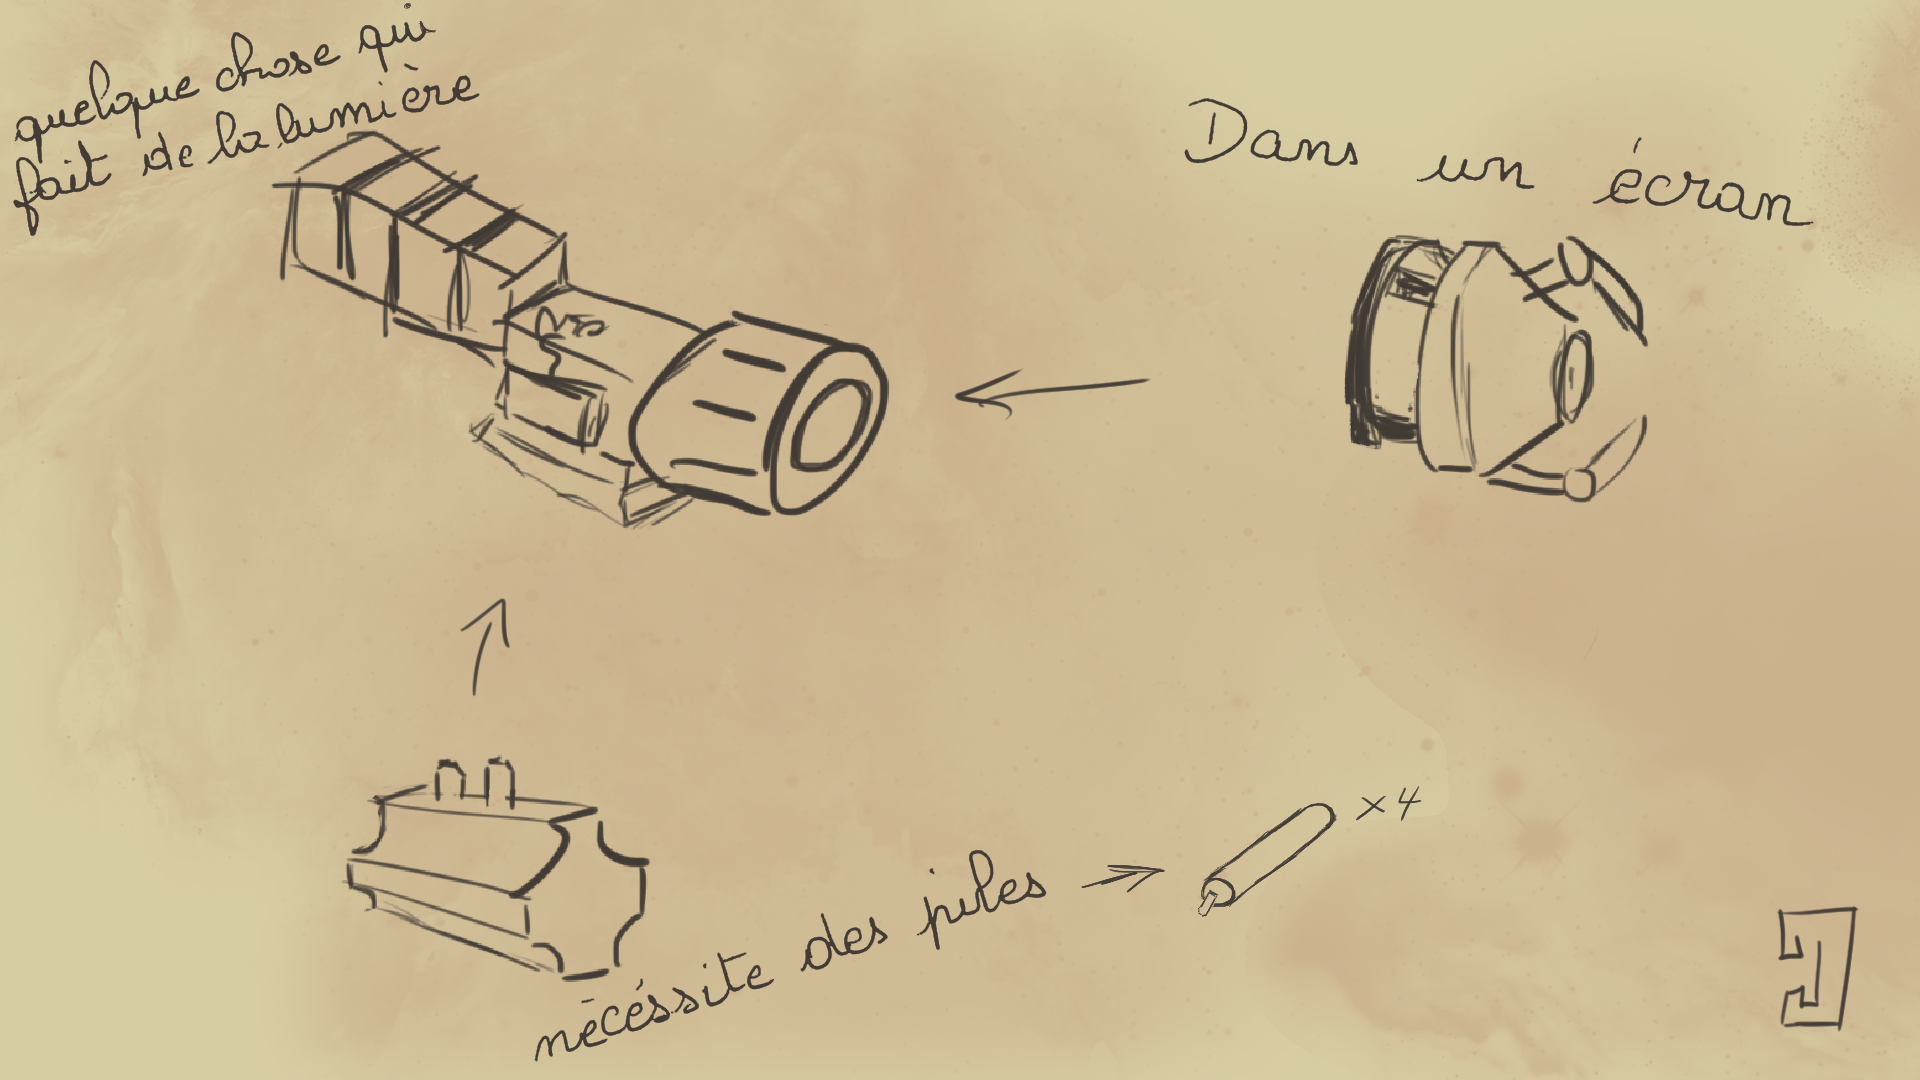 quelque chose qui
fait de la lumière
Dans un écran
nécéssite des piles
x4